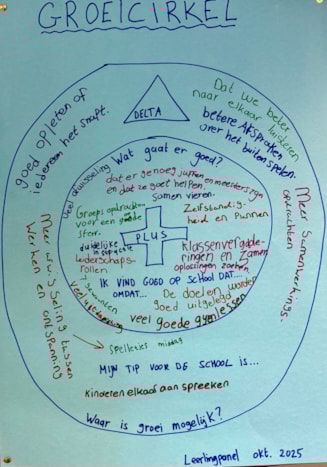 GROEICIRKEL
DELTA
goed opletten of
iedereen het snapt.
Dat we beter
naar elkaar luisteren
betere afspraken
over het buitenspelen.
Meer samenwerkings
opdrachten
Meer afwisseling tussen
Werken en ontspanning
Wat gaat er goed?
Veel afwisseling
dat er genoeg juffen en meesters zijn
en dat ze goed helpen.
samen vieren.
Groeps opdrachten
voor een goede
sfeer.
duidelijke
leiderschaps-
rollen
PLUS
Zelfstandig-
heid en plannen
Klassenvergade-
ringen en samen
oplossingen zoeken
IK VIND GOED OP SCHOOL DAT....
OMDAT...
De doelen worden
goed uitgelegd
veel goede gymlessen
Spelletjes middag
MIJN TIP VOOR DE SCHOOL IS...
Kinderen elkaar aanspreeken
Waar is groei mogelijk?
Leerlingpanel okt. 2025